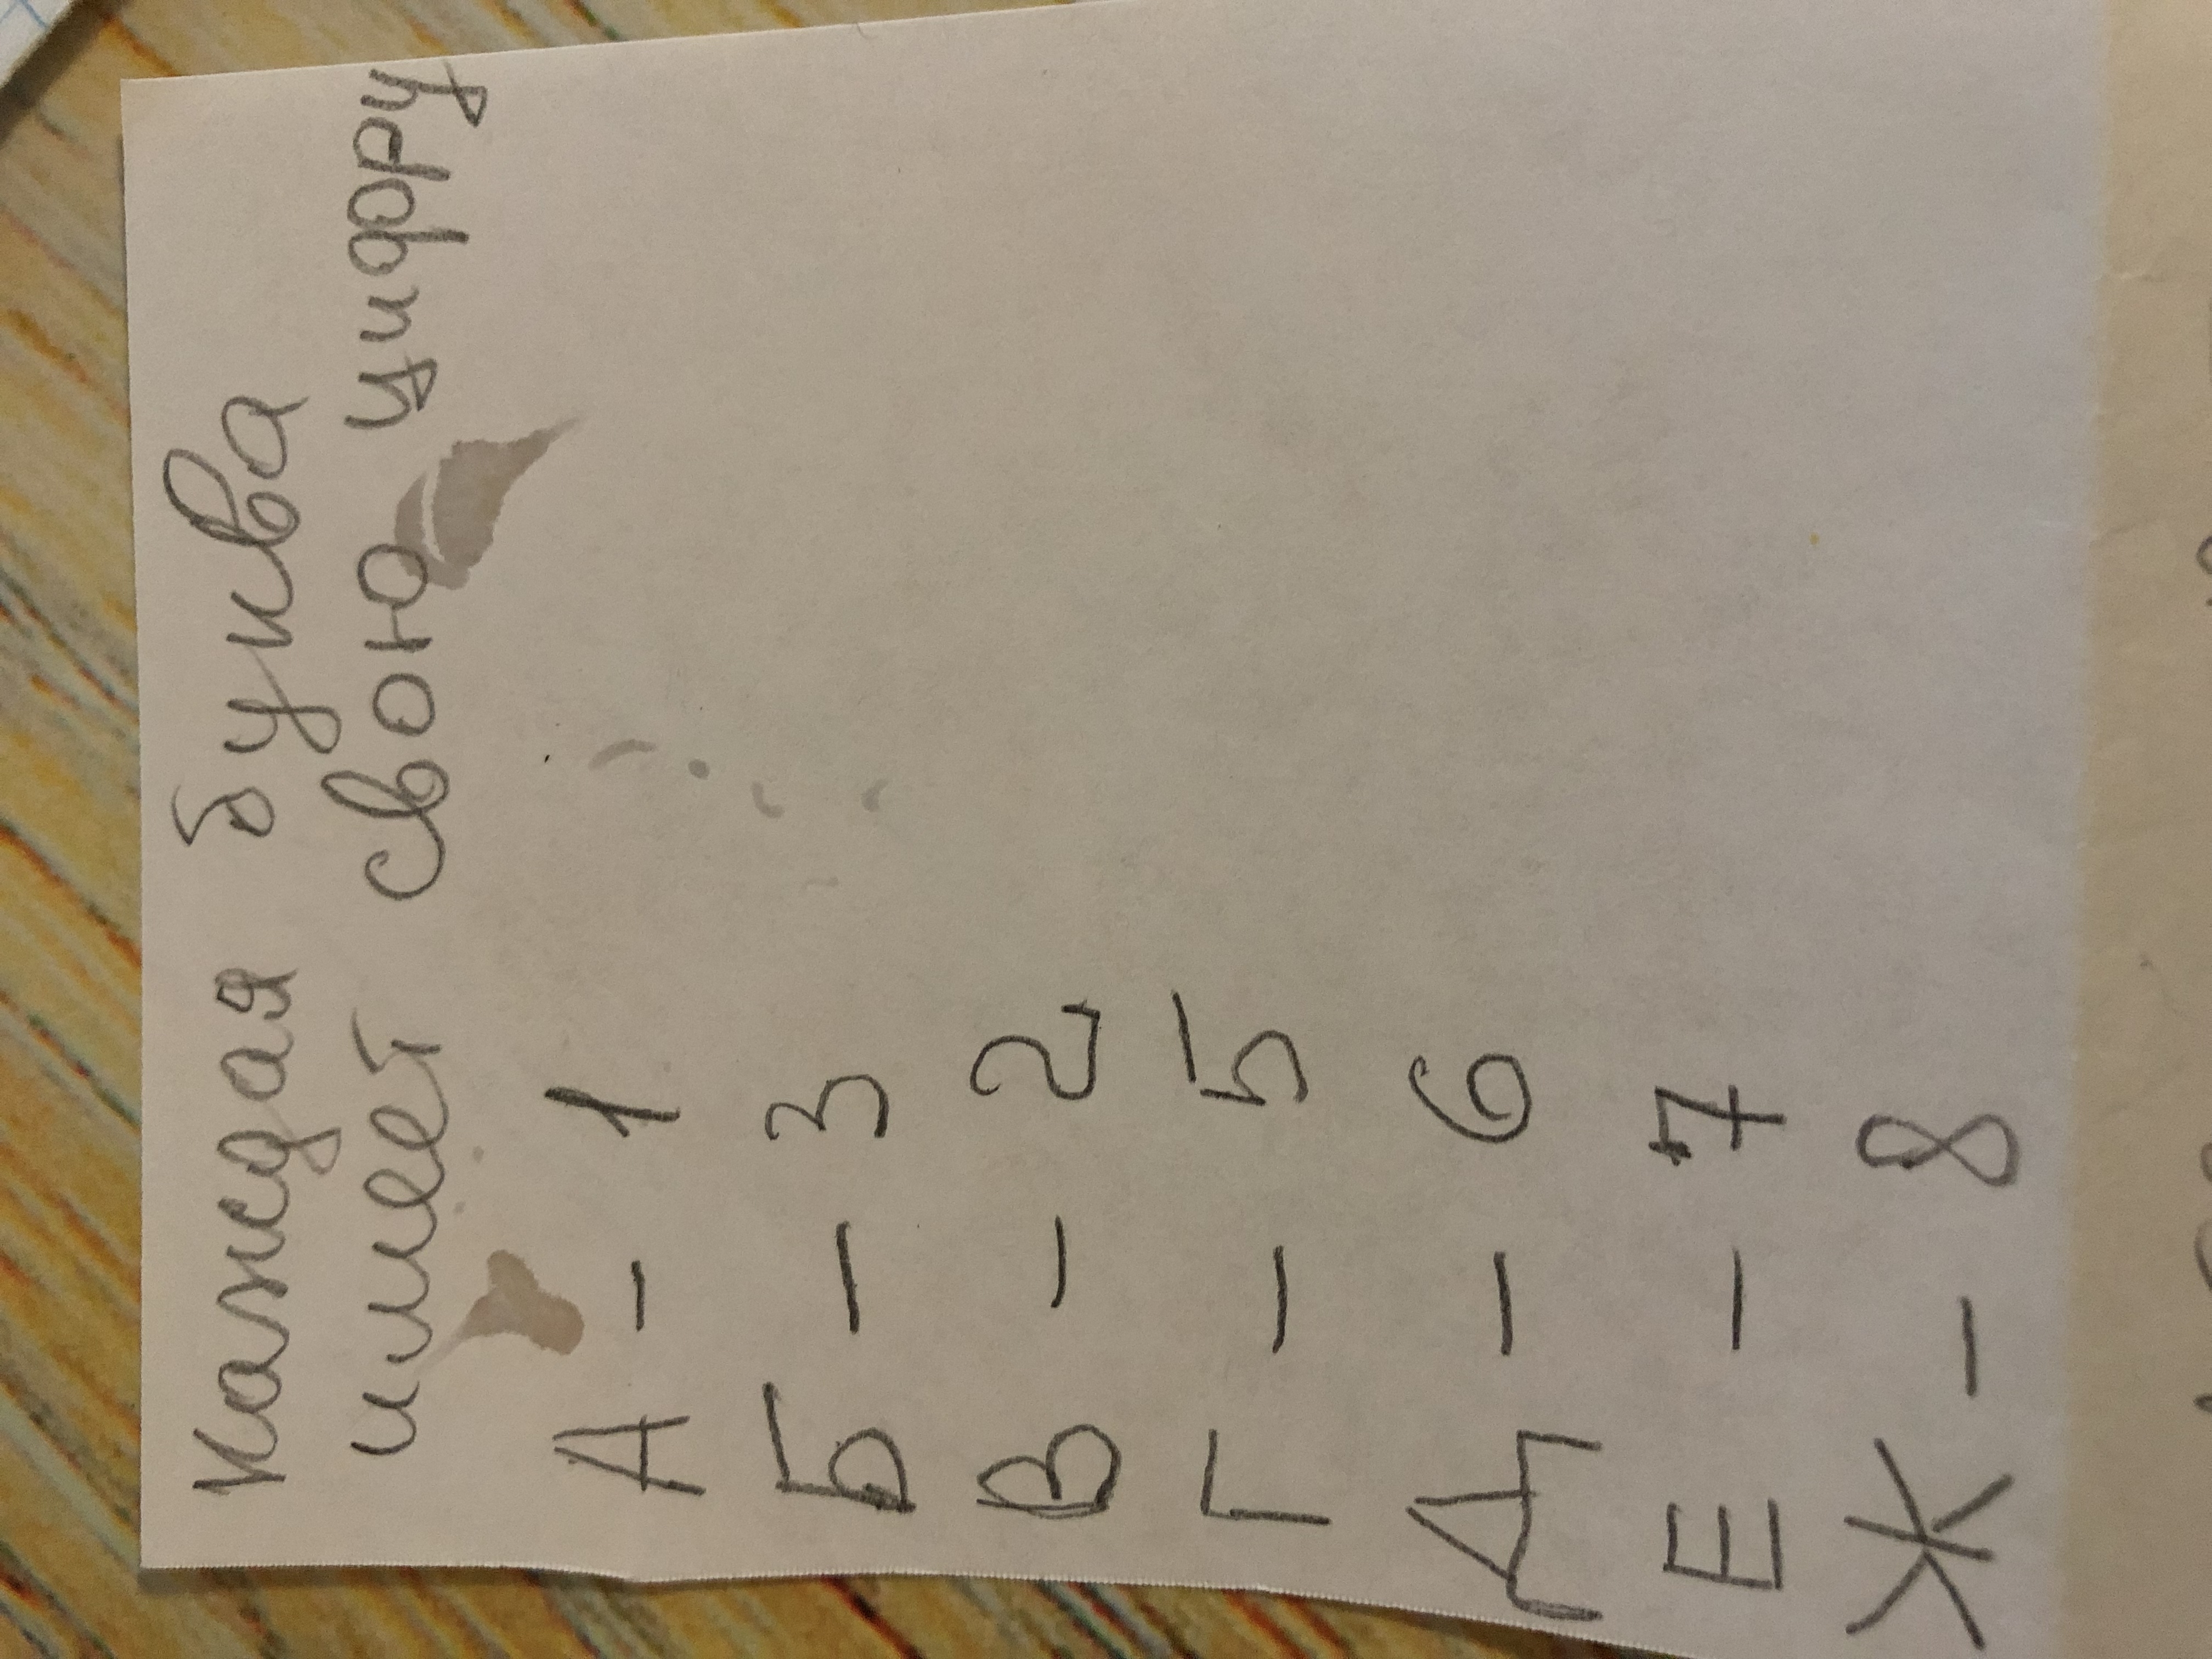 Каждая буква
имеет свою цифру
А - 1
Б - 3
В - 2
Г - 5
Д - 6
Е - 7
Ж - 8